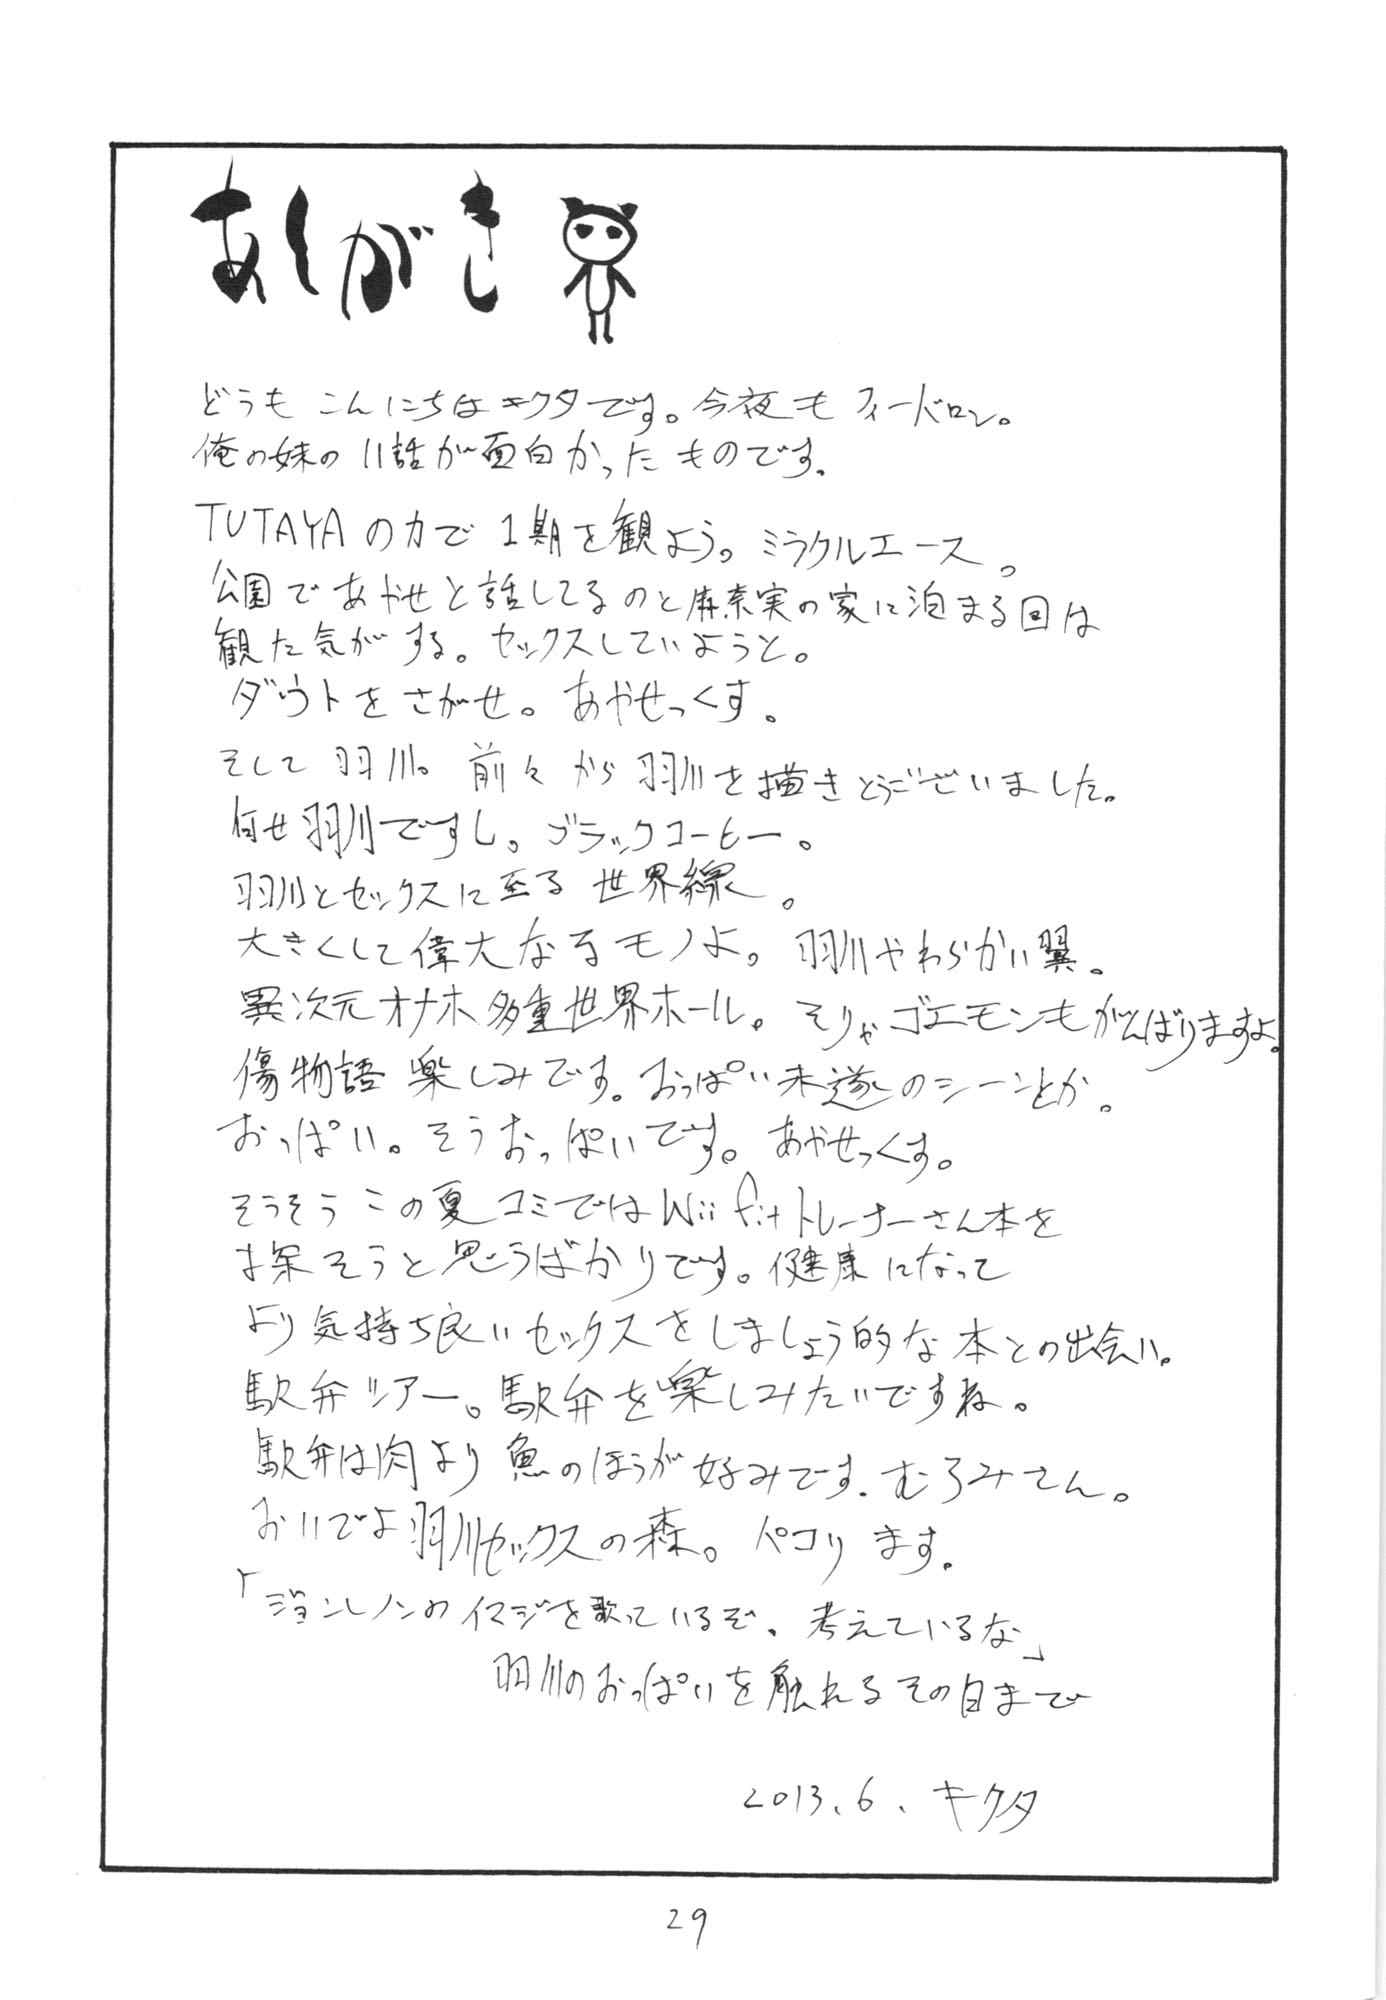 あとがき
どうもこんにちはキクタです。今夜もフィードロン。
俺の妹の11話が面白かったものです。
TUTAYAの力で1期を観よう。ミラクルエース。
公園であやせと話してるのと麻奈実の家に泊まる回は
観た気がする。セックスしていようと。
ダウトをさがせ。あやせっくす。
そして羽川。前々から羽川を描きとうございました。
何せ羽川ですし。ブラックコーヒー。
羽川とセックスに至る世界線。
大きくして偉大なるモノよ。羽川やわらかい翼。
異次元オナホ多重世界ホール。そりゃゴエモンもがんばりますよ。
傷物語楽しみです。おっぱい未遂のシーンとか。
おっぱい。そうおっぱいです。あやせっくす。
そうそうこの夏コミではWii fitトレーナーさん本を
お探そうと思うばかりです。健康になって
より気持ち良いセックスをしましょう的な本との出会い。
駅弁ツアー。駅弁を楽しみたいですね。
駅弁は肉より魚のほうが好みです。むろみさん。
おいでよ羽川セックスの森。ペコリます。
「ジョンレノンのイマジを歌っているぞ。考えているな」
羽川のおっぱいを触れるその日まで
2013.6. キクタ
29